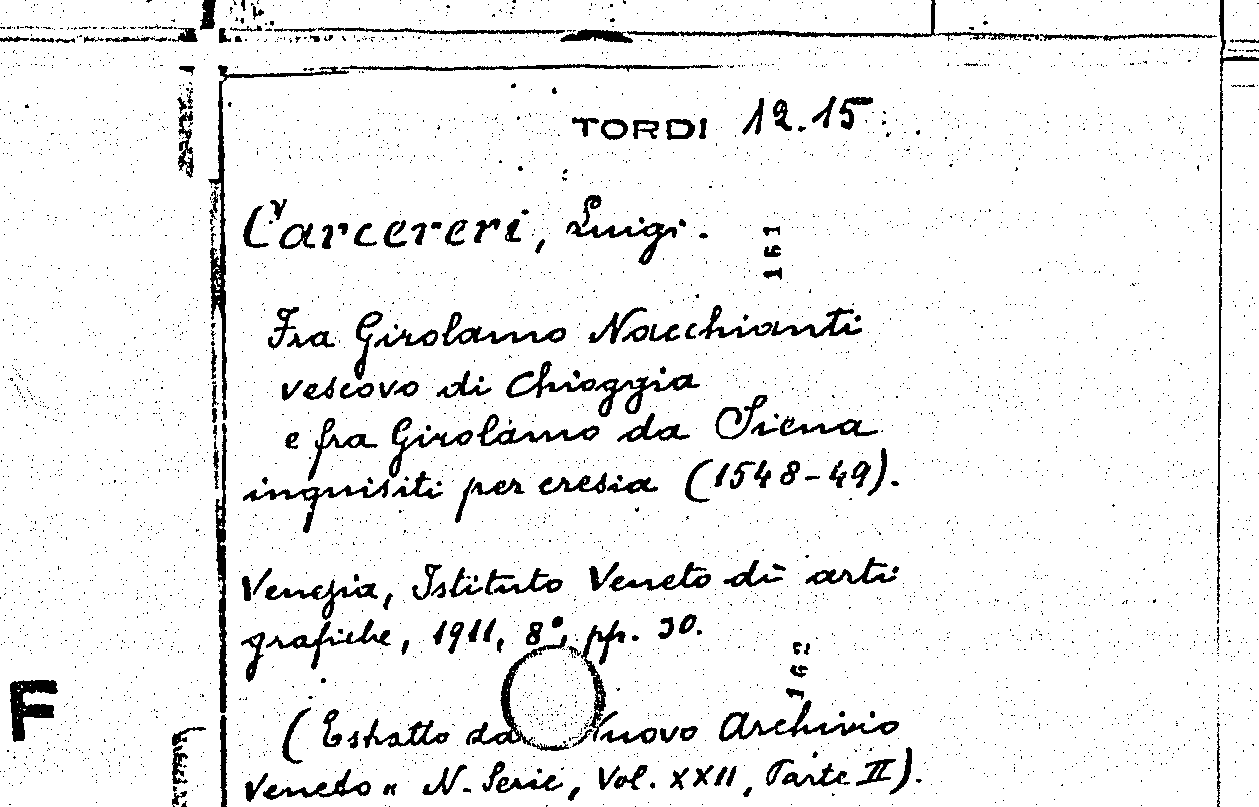 TORDI 12.15
Carcereri, Luigi.
161
Fra Girolamo Nacchianti
vescovo di Chioggia
e fra Girolamo da Siena
inquisiti per eresia (1548-49).
Venezia, Istituto Veneto di arti
grafiche, 1911, 8°, pp. 30.
162
F
(Estratto da Nuovo Archivio
Veneto" N. Serie, Vol. XXII, Parte II).